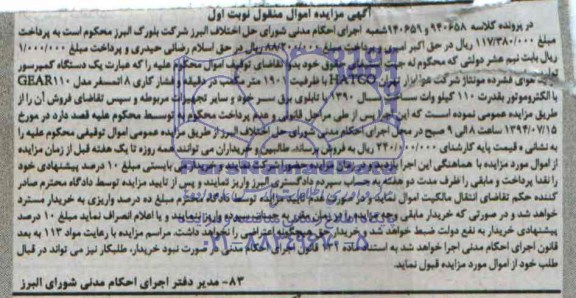 آگهی مزایده اموال منقول نوبت اول
در پرونده کلاسه ۹۴۰۶۵۸ و ۹۴۰۶۵۹شعبه اجرای احکام مدنی شورای حل اختلاف البرز شرکت بلورک البرز محکوم است به پرداخت
مبلغ ۱۱۷/۳۸۰/۰۰۰ ریال در حق اکبر اسبی و پرداخت مبلغ ۸۸/۲۰۰/۰۰۰ ریال در حق اسلام رضائی حیدری و پرداخت مبلغ ۱/۰۰۰/۰۰۰
ریال بابت نیم عشر دولتی که محکوم له جهت استیفای حقوق خود بدواً تقاضای توقیف اموال محکوم علیه را که عبارت یک دستگاه کمپرسور
هوای فشرده مونتاژ شرکت هوا ابزار تهران HATCO با ظرفیت ۱۹۰۰ متر مکعب در دقیقه و فشار کاری ۸ اتمسفر مدل GEAR110
با الکتروموتور بقدرت ۱۱۰ کیلو وات ساخت سال ۱۳۹۰ با تابلوی برق سر خود و سایر تجهیزات مربوطه و سپس تقاضای فروش آن را از
طریق مزایده عمومی نموده است که این اجرا پس از طی مراحل قانونی و عدم پرداخت محکوم به توسط محکوم علیه قصد دارد در مورخ
۱۳۹۴/۰۷/۱۵ ساعت ۸ الی ۹ صبح در محل اجرای احکام مدنی شورای حل اختلاف البرز از طریق مزایده عمومی اموال توقیفی محکوم علیه را
به نشانی و قیمت پایه کارشناسی ۲۴۰/۰۰۰/۰۰۰ ریال به فروش برساند. طالبین و خریداران می توانند همه روزه تا یک هفته قبل از زمان مزایده
از اموال مورد مزایده با هماهنگی این اجرا بازدید و در زمان مزایده حضورا شرکت نمایند و خریدار می بایستی مبلغ ۱۰ درصد پیشنهادی خود
را نقدا پرداخت و مابقی را ظرف مدت دو هفته به حساب سپرده دادگستری البرز واریز نمایند و پس از تایید مزایده توسط دادگاه محترم صادر
کننده حکم تقاضای انتقال مالکیت اموال نمایند و در صورت عدم تایید مزایده توسط دادگاه محترم مبلغ ده درصد واریزی به خریدار مسترد
خواهد شد و در صورتی که خریدار مابقی وجه مزایده را در زمان مقرر به حساب سپرده واریز ننمایند و یا اعلام انصراف نماید مبلغ ۱۰ درصد
پیشنهادی خریدار به نفع دولت ضبط خواهد شد و خریدار حق هیچگونه اعتراضی را نخواهد داشت. مراسم مزایده با رعایت مواد ۱۱۳ به بعد
قانون اجرای احکام مدنی اجرا خواهد شد به استناد ماده قانون اجرای احکام مدنی در صورت نبود خریدار، طلبکار نیز می تواند در قبال
طلب خود از اموال مورد مزایده قبول نماید.
۸۳- مدیر دفتر اجرای احکام مدنی شورای البرز
ParsNamadData
۰۲۱-۸۸۳۴۹۶۷۰-۵